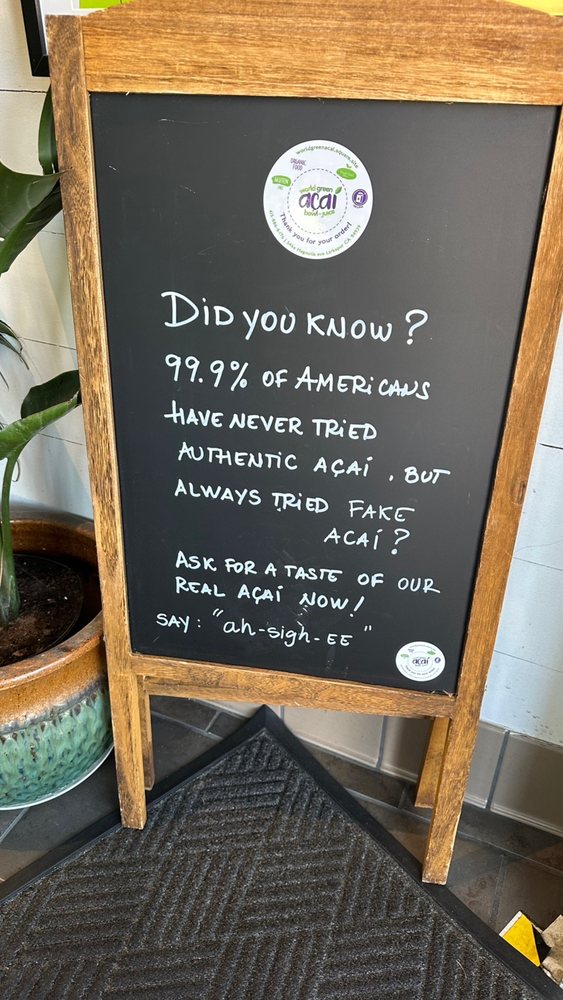 worldgreenacai.square.site
ORGANIC
FOOD
world green
açaí
bowl & juice
Thank you for your order!
DiD YOU KNOW?
99.9% OF AMERiCANS
HAVE NEVER TRiED
AUTHENTiC AÇAÍ , BUT
ALWAYS TRiED FAKE
ACAÍ?
ASK FOR A TASTE OF OUR
REAL AÇAÍ NOW!
SAY: "ah-sigh-EE"
açaí